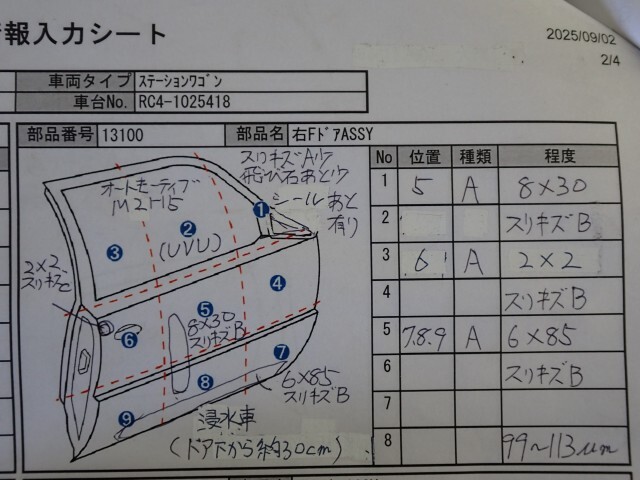 情報入力シート
2025/09/02
2/4
車両タイプ ステーションワゴン
車台No. RC4-1025418
部品番号 13100 部品名 右FドアASSY
スリキズA少
飛び石あと少
シールあと
有り
オートモーティブ
M21-15
(UVU)
1
2
3
4
5
6
7
8
9
2×2
8×30
スリキズB
6×85
スリキズB
浸水車
(ドア下から約30cm)
No 位置 種類 程度
1 5 A 8×30
2 スリキズB
3 6 A 2×2
4 スリキズB
5 7.8.9 A 6×85
6 スリキズB
8 99~113μm